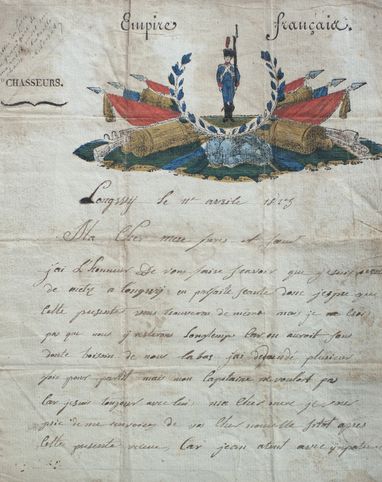 Empire français.
CHASSEURS.
Longwy le 11e avrile 1815
Ma Cher mere frere et sœur
j'ai L'honneur De vou faire scavoir que je suis
de metz a longwy en parfaite sante donc j'espere que
Cette presente vous trouvera de meme mes je ne crois
pas que nous y resterons Longtemps Car on auroit sans
doute besoin de nous labas j'ai demandé plusieur
fois pour partir mais mon Capitaine ne voulut pas
Car je suis toujour avec lui ma cher mere je vous
prie de me envoyer de vos Cher nouvelle sitot apres
Cette presente recue, Car jean atent avec